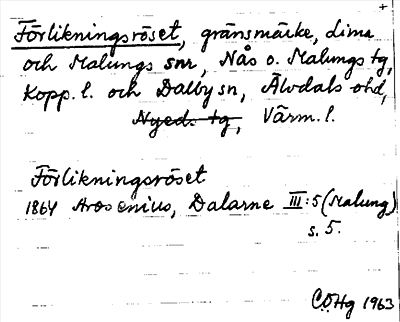 +
Förlikningsröset, gränsmärke, Lima
och Malungs snr, Nås o. Malungs tg,
Kopp. l. och Dalby sn, Älvdals ohd,
Nyeds tg, Värm. l.
Förlikningsröset
1864 Arosenius, Dalarne III:5 (Malung)
s. 5.
CÖHg 1963